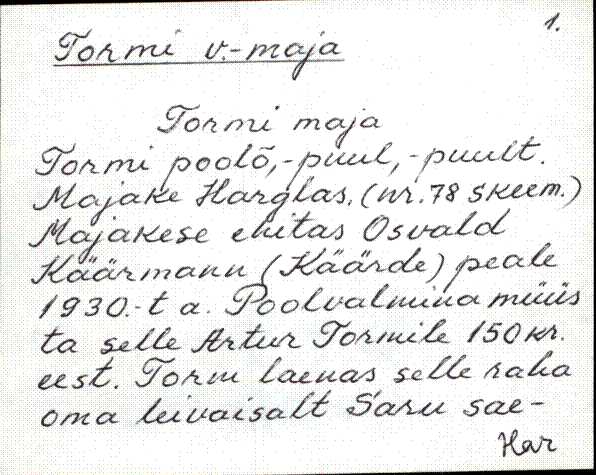 1.
Tormi v.-maja
Tormi maja
Tormi poolõ,-puul,-puult.
Majake Harglas. (nr. 78 skeem.)
Majakese ehitas Osvald
Käärmann (Käärde) peale
1930.-t a. Poolvalmina müüs
ta selle Artur Tormile 150 kr.
eest. Torm laenas selle raha
oma leivaisalt Saru sae-
Har